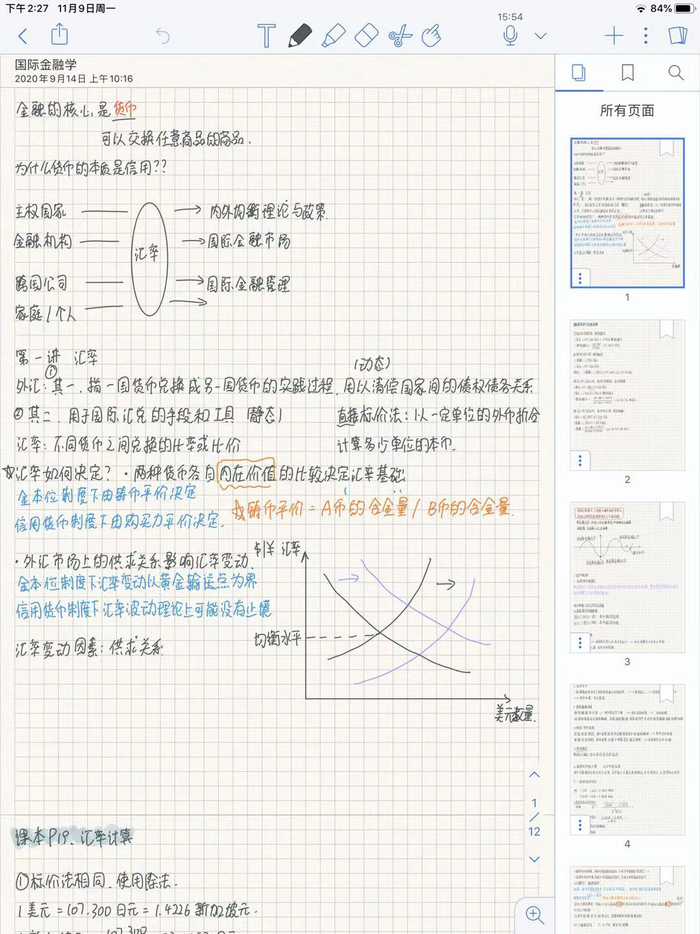 下午2:27 11月9日周一
84%
15:54
国际金融学
2020年9月14日 上午10:16
金融的核心是货币
可以交换任意商品的商品.
为什么货币的本质是信用??
主权国家
金融机构
跨国公司
家庭/个人
汇率
内外均衡理论与政策
国际金融市场
国际金融管理
第一讲 汇率
(动态)
外汇:①其一,指一国货币兑换成另一国货币的实践过程,用以清偿国家间的债权债务关系
②其二,用于国际汇兑的手段和工具 (静态)
直接标价法:以一定单位的外币折合
计算多少单位的本币.
汇率:不同货币之间兑换的比率或比价
☆汇率如何决定?·两种货币各自内在价值的比较决定汇率基础
金本位制度下由铸币平价决定
信用货币制度下由购买力平价决定.
☆铸币平价=A币的含金量/B币的含金量.
·外汇市场上的供求关系影响汇率变动.
金本位制度下汇率变动以黄金输送点为界
信用货币制度下汇率波动理论上可能没有止境
汇率变动因素:供求关系
$|¥ 汇率
均衡水平
美元数量.
课本P19.汇率计算
①标价法相同,使用除法.
1美元=107.300日元=1.4226新加坡元.
1
/
12
所有页面
1
2
3
4